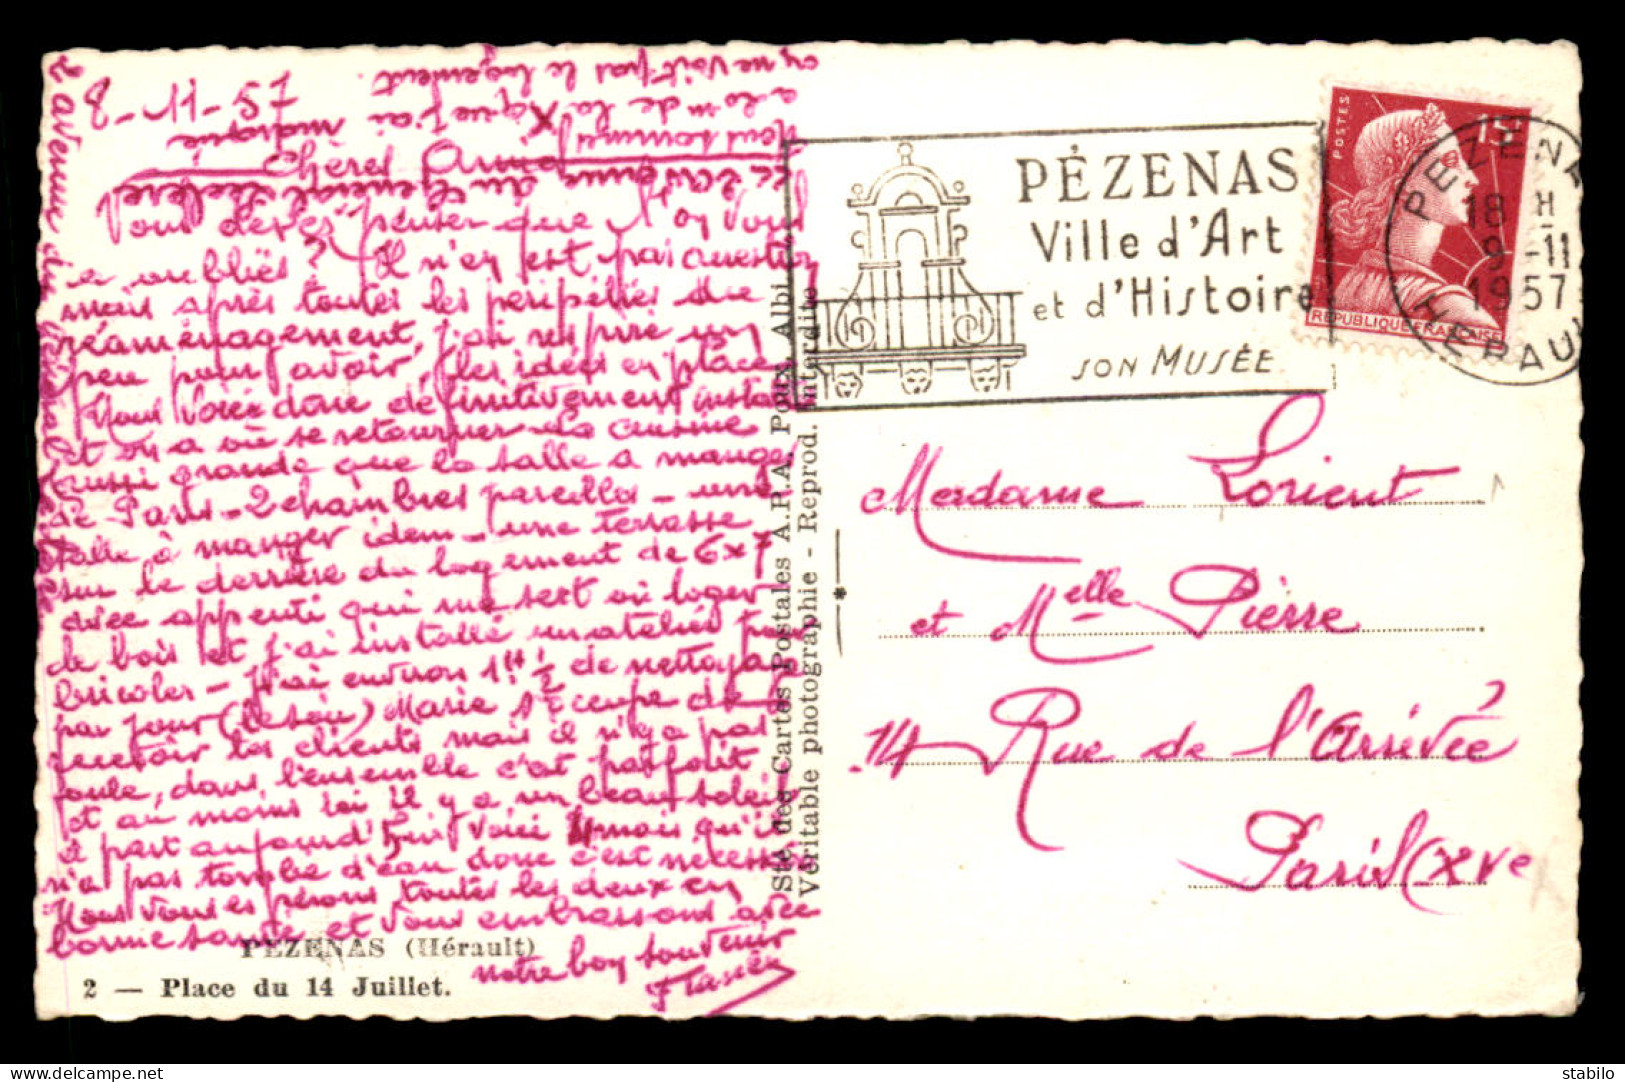 8-11-57
Chères Amies
Vous devez penser que l'on vous
a oubliés ? Il n'en est pas question
mais après toutes les péripéties du
réaménagement, j'ai respiré un
peu pour avoir les idées en place
Nous voici donc définitivement
et on a où se retourner la cuisine
aussi grande que la salle à manger
de Paris - 2 chambres pareilles - une
salle à manger idem - une terrasse
sur le derrière du logement de 6x7
avec appenti qui me sert où loger
du bois et j'ai installé un atelier pour
bricoler - j'ai environ 1H 1/2 de nettoyage
par jour (le soir) Marie s'occupe de
recevoir les clients mais il n'y a pas
foule, dans l'ensemble c'est parfait
et au moins ici il y a un beau soleil
à part aujourd'hui voici 4 mois qu'il
n'a pas tombé d'eau donc c'est nécessaire
Nous vous espérons toutes les deux en
bonne santé et vous embrassons avec
notre bon souvenir
2 avenue du Général Leclerc
Nous sommes
2 avenue du Général Leclerc
à 20 m de la X que j'ai marquée
on ne voit pas le logement
PÉZENAS (Hérault)
2 — Place du 14 Juillet.
Sté des Cartes Postales A.P.A. POUX, Albi
Véritable photographie - Reprod. interdite
*
PÉZENAS
Ville d'Art
et d'Histoire
SON MUSÉE
POSTES
15F
REPUBLIQUE FRANÇAISE
PEZENAS
18 H
9 -11
1957
HERAULT
Madame Lorient
et Melle Pierre
14 Rue de l'Arrivée
Paris (XVe
delcampe.net
stabilo